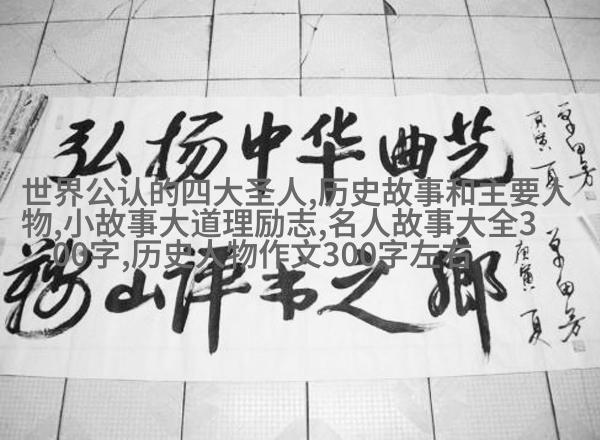 弘扬中华曲艺
庚寅夏
单田芳
世界公认的四大圣人,历史故事和主要人
物,小故事大道理励志,名人故事大全3
00字,历史人物作文300字左右
鞍山评书之鄉
庚寅夏
单田芳